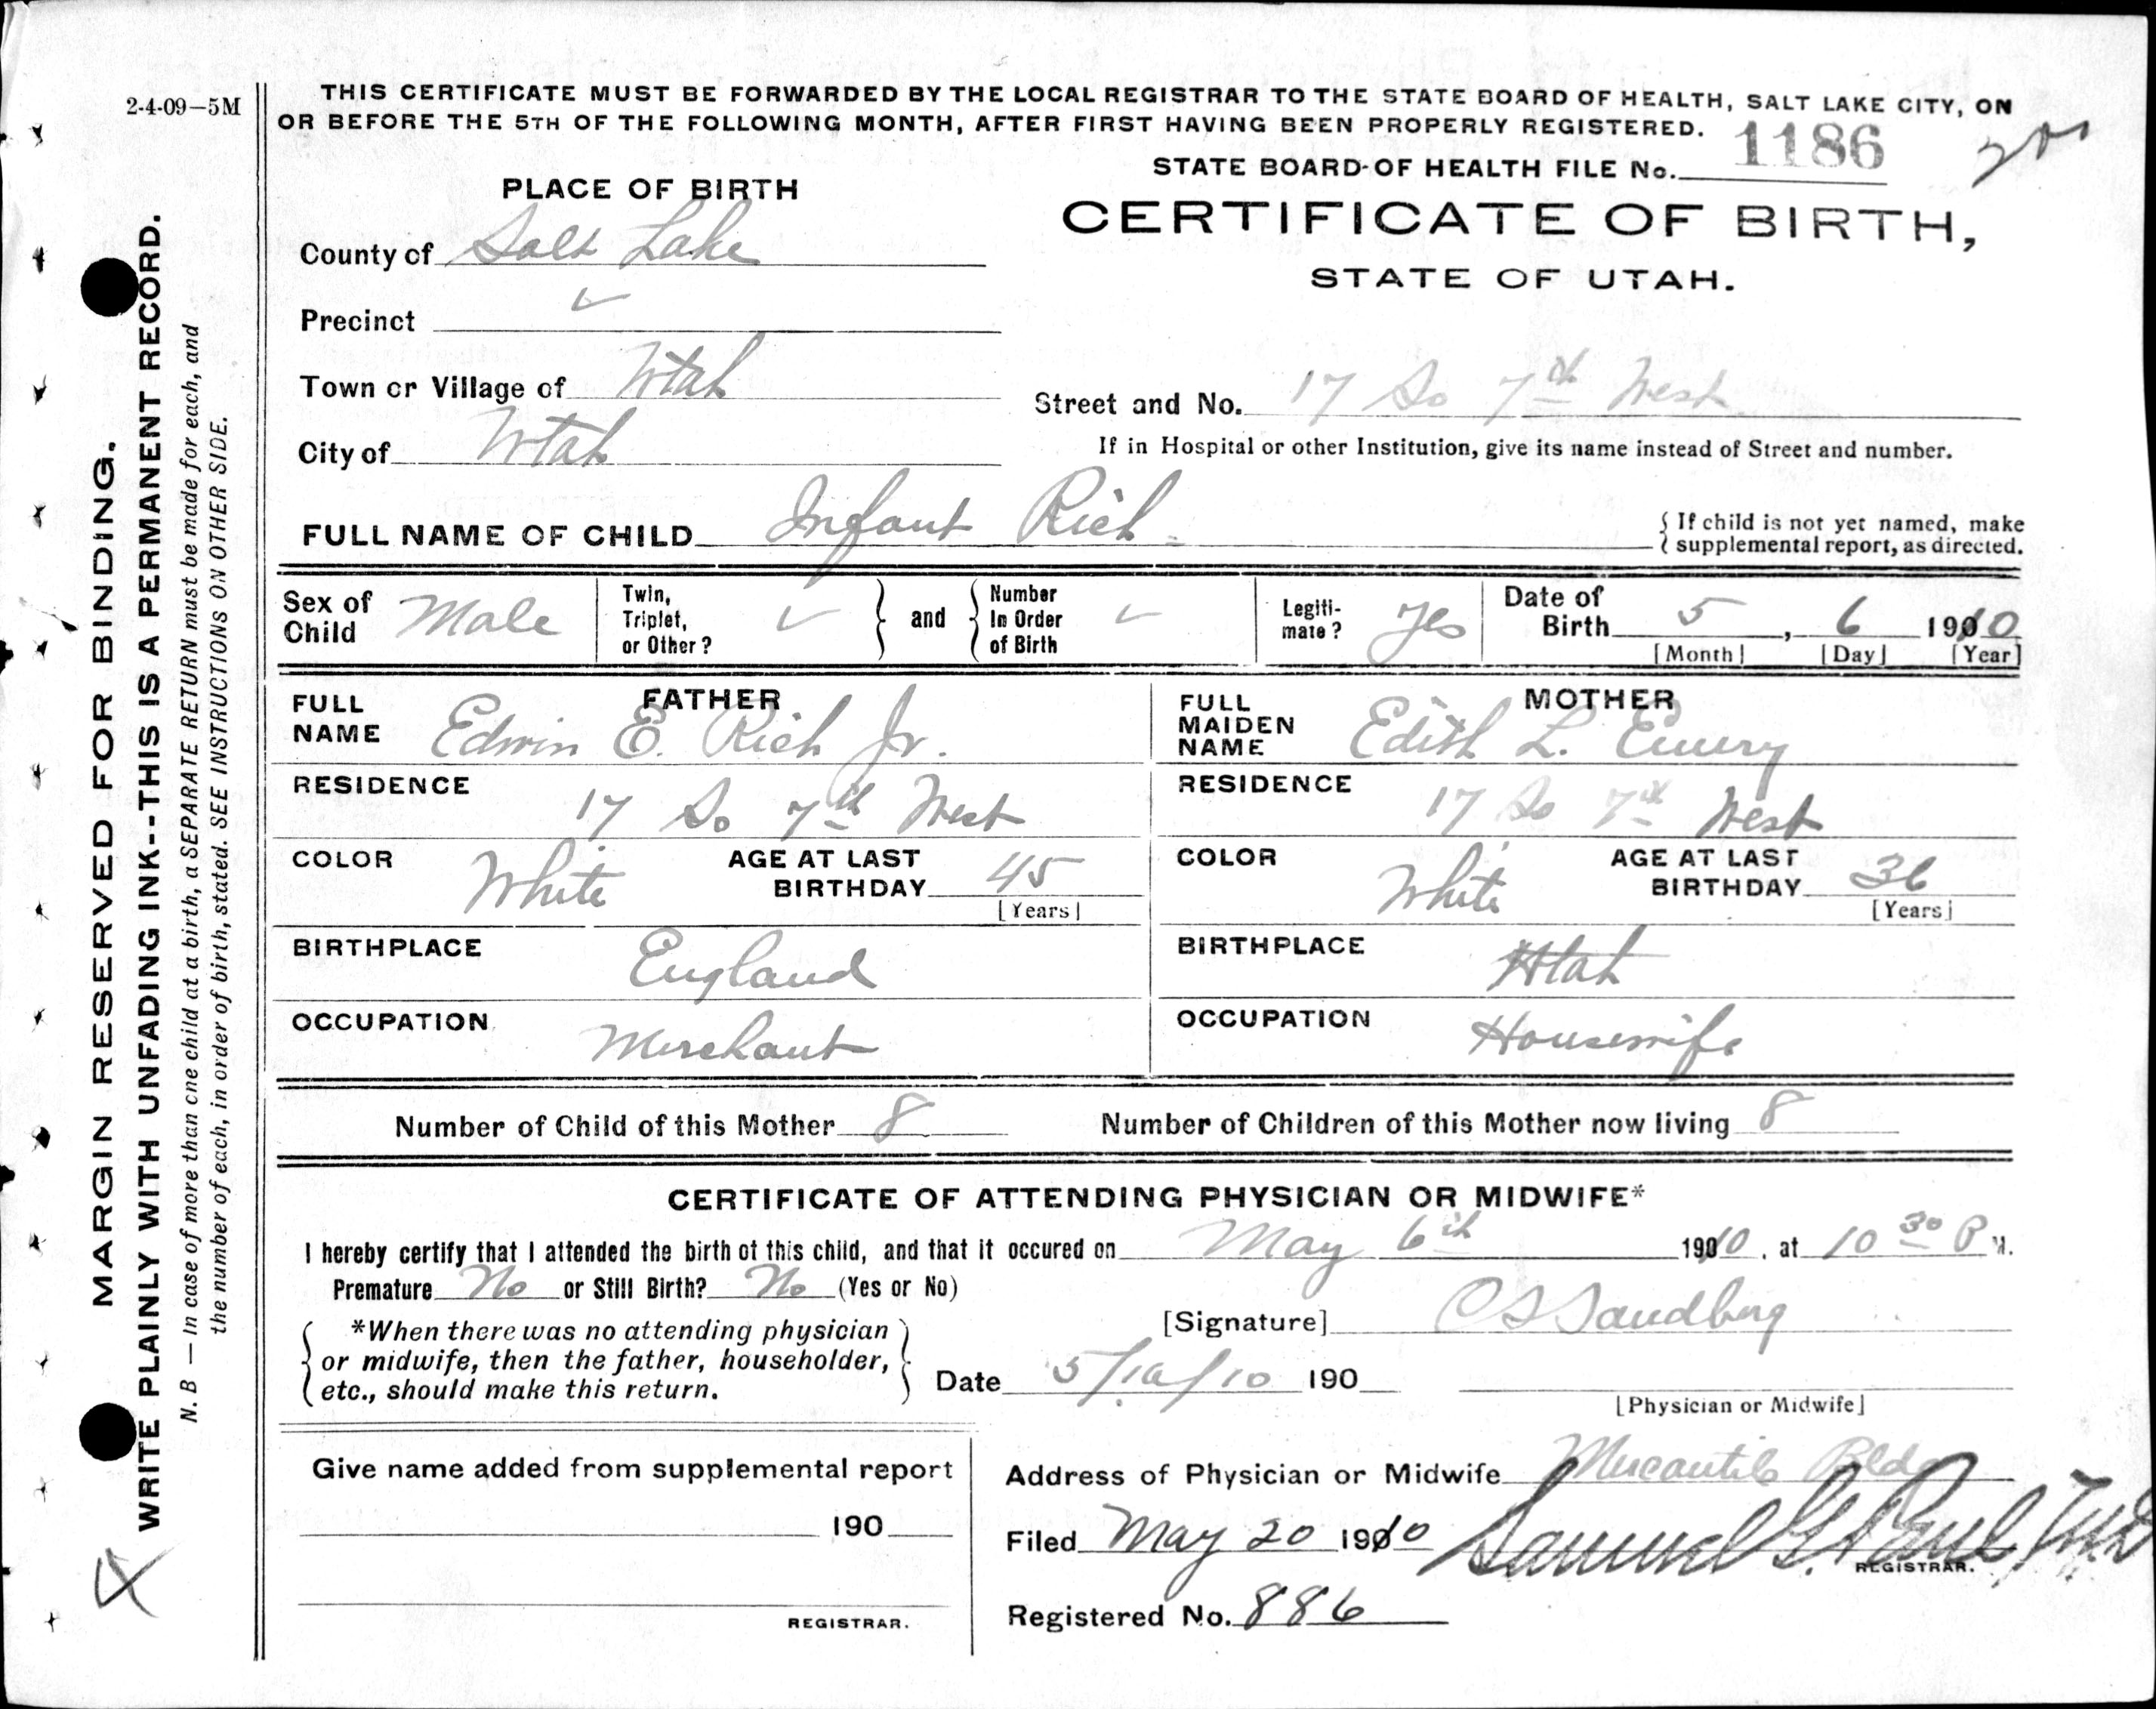 2-4-09—5M
THIS CERTIFICATE MUST BE FORWARDED BY THE LOCAL REGISTRAR TO THE STATE BOARD OF HEALTH, SALT LAKE CITY, ON
OR BEFORE THE 5TH OF THE FOLLOWING MONTH, AFTER FIRST HAVING BEEN PROPERLY REGISTERED.
STATE BOARD OF HEALTH FILE No. 1186
CERTIFICATE OF BIRTH,
STATE OF UTAH.
PLACE OF BIRTH
County of Salt Lake
Precinct ✓
Town or Village of Utah
City of Utah
Street and No. 17 So 7th West
If in Hospital or other Institution, give its name instead of Street and number.
FULL NAME OF CHILD Infant Rich
{ If child is not yet named, make
supplemental report, as directed.
Sex of Child Male
Twin, Triplet, or Other? ✓ } and { Number In Order of Birth ✓
Legiti-mate? Yes
Date of Birth 5, 6 1910
[Month] [Day] [Year]
FATHER
FULL NAME Edwin E. Rich Jr.
RESIDENCE 17 So 7th West
COLOR White AGE AT LAST BIRTHDAY 45
[Years]
BIRTHPLACE England
OCCUPATION Merchant
MOTHER
FULL MAIDEN NAME Edith L. Emery
RESIDENCE 17 So 7th West
COLOR White AGE AT LAST BIRTHDAY 36
[Years]
BIRTHPLACE Utah
OCCUPATION Housewife
Number of Child of this Mother 8 Number of Children of this Mother now living 8
CERTIFICATE OF ATTENDING PHYSICIAN OR MIDWIFE*
I hereby certify that I attended the birth of this child, and that it occured on May 6th 1910, at 10 30 P M.
Premature No or Still Birth? No (Yes or No)
*When there was no attending physician
or midwife, then the father, householder,
etc., should make this return.
[Signature] C S Sandberg
Date 5/10/10 190
[Physician or Midwife]
Give name added from supplemental report
190
REGISTRAR.
Address of Physician or Midwife Mercantile Bldg
Filed May 20 1910 Samuel G. Paul MD
REGISTRAR.
Registered No. 886
MARGIN RESERVED FOR BINDING.
WRITE PLAINLY WITH UNFADING INK--THIS IS A PERMANENT RECORD.
N. B — In case of more than one child at a birth, a SEPARATE RETURN must be made for each, and
the number of each, in order of birth, stated. SEE INSTRUCTIONS ON OTHER SIDE.